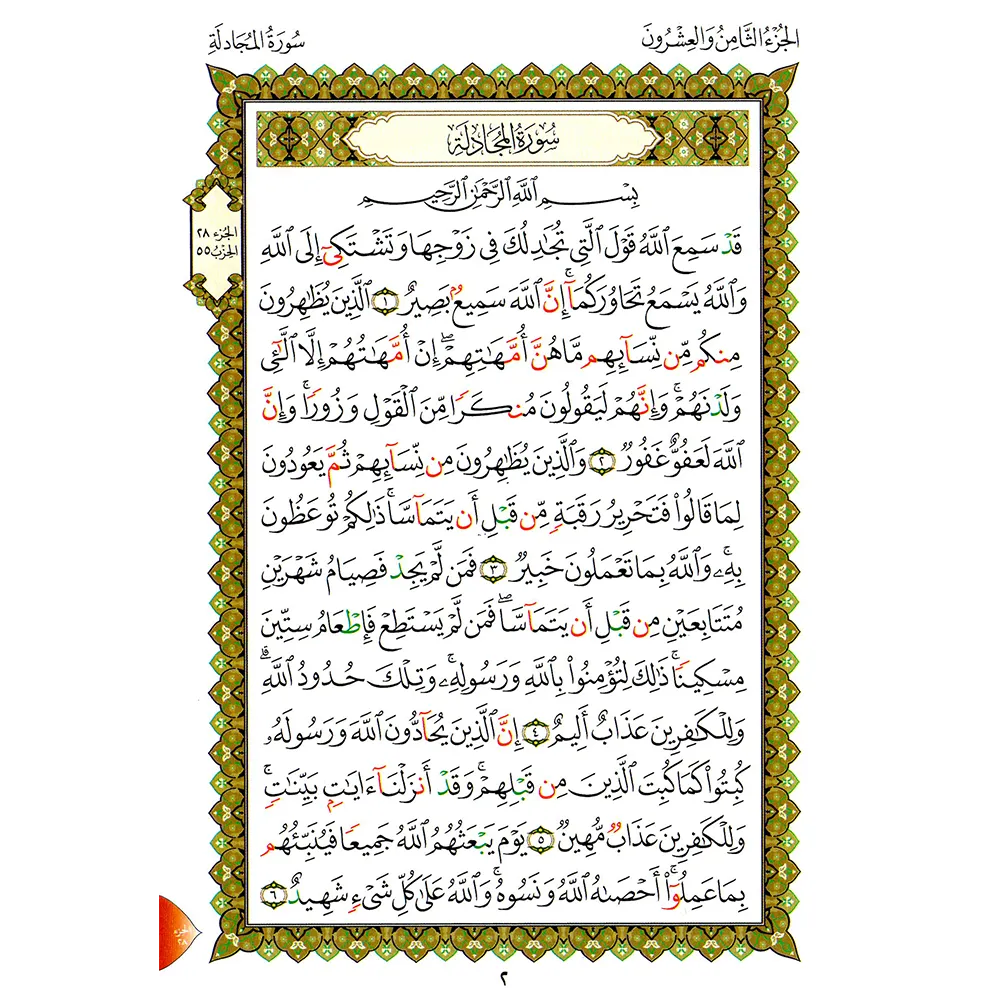 الجُزْءُ الثَّامِنُ وَالعِشْرُونَ
سُورَةُ المُجَادلَةِ
سُورَةُ المُجَادلَةِ
بِسْمِ ٱللَّهِ ٱلرَّحْمَٰنِ ٱلرَّحِيمِ
الجزء ٢٨
الحزب ٥٥
قَدْ سَمِعَ ٱللَّهُ قَوْلَ ٱلَّتِى تُجَٰدِلُكَ فِى زَوْجِهَا وَتَشْتَكِىٓ إِلَى ٱللَّهِ
وَٱللَّهُ يَسْمَعُ تَحَاوُرَكُمَآ ۚ إِنَّ ٱللَّهَ سَمِيعٌۢ بَصِيرٌ ١ ٱلَّذِينَ يُظَٰهِرُونَ
مِنكُم مِّن نِّسَآئِهِم مَّا هُنَّ أُمَّهَٰتِهِمْ ۖ إِنْ أُمَّهَٰتُهُمْ إِلَّا ٱلَّٰٓـِٔى
وَلَدْنَهُمْ ۚ وَإِنَّهُمْ لَيَقُولُونَ مُنكَرًا مِّنَ ٱلْقَوْلِ وَزُورًا ۚ وَإِنَّ
ٱللَّهَ لَعَفُوٌّ غَفُورٌ ٢ وَٱلَّذِينَ يُظَٰهِرُونَ مِن نِّسَآئِهِمْ ثُمَّ يَعُودُونَ
لِمَا قَالُوا۟ فَتَحْرِيرُ رَقَبَةٍ مِّن قَبْلِ أَن يَتَمَآسَّا ۚ ذَٰلِكُمْ تُوعَظُونَ
بِهِۦ ۚ وَٱللَّهُ بِمَا تَعْمَلُونَ خَبِيرٌ ٣ فَمَن لَّمْ يَجِدْ فَصِيَامُ شَهْرَيْنِ
مُتَتَابِعَيْنِ مِن قَبْلِ أَن يَتَمَآسَّا ۖ فَمَن لَّمْ يَسْتَطِعْ فَإِطْعَامُ سِتِّينَ
مِسْكِينًا ۚ ذَٰلِكَ لِتُؤْمِنُوا۟ بِٱللَّهِ وَرَسُولِهِۦ ۚ وَتِلْكَ حُدُودُ ٱللَّهِ ۗ
وَلِلْكَٰفِرِينَ عَذَابٌ أَلِيمٌ ٤ إِنَّ ٱلَّذِينَ يُحَآدُّونَ ٱللَّهَ وَرَسُولَهُۥ
كُبِتُوا۟ كَمَا كُبِتَ ٱلَّذِينَ مِن قَبْلِهِمْ ۚ وَقَدْ أَنزَلْنَآ ءَايَٰتٍۭ بَيِّنَٰتٍ ۚ
وَلِلْكَٰفِرِينَ عَذَابٌ مُّهِينٌ ٥ يَوْمَ يَبْعَثُهُمُ ٱللَّهُ جَمِيعًا فَيُنَبِّئُهُم
بِمَا عَمِلُوٓا۟ ۚ أَحْصَىٰهُ ٱللَّهُ وَنَسُوهُ ۚ وَٱللَّهُ عَلَىٰ كُلِّ شَىْءٍ شَهِيدٌ ٦
جزء
٢٨
٢